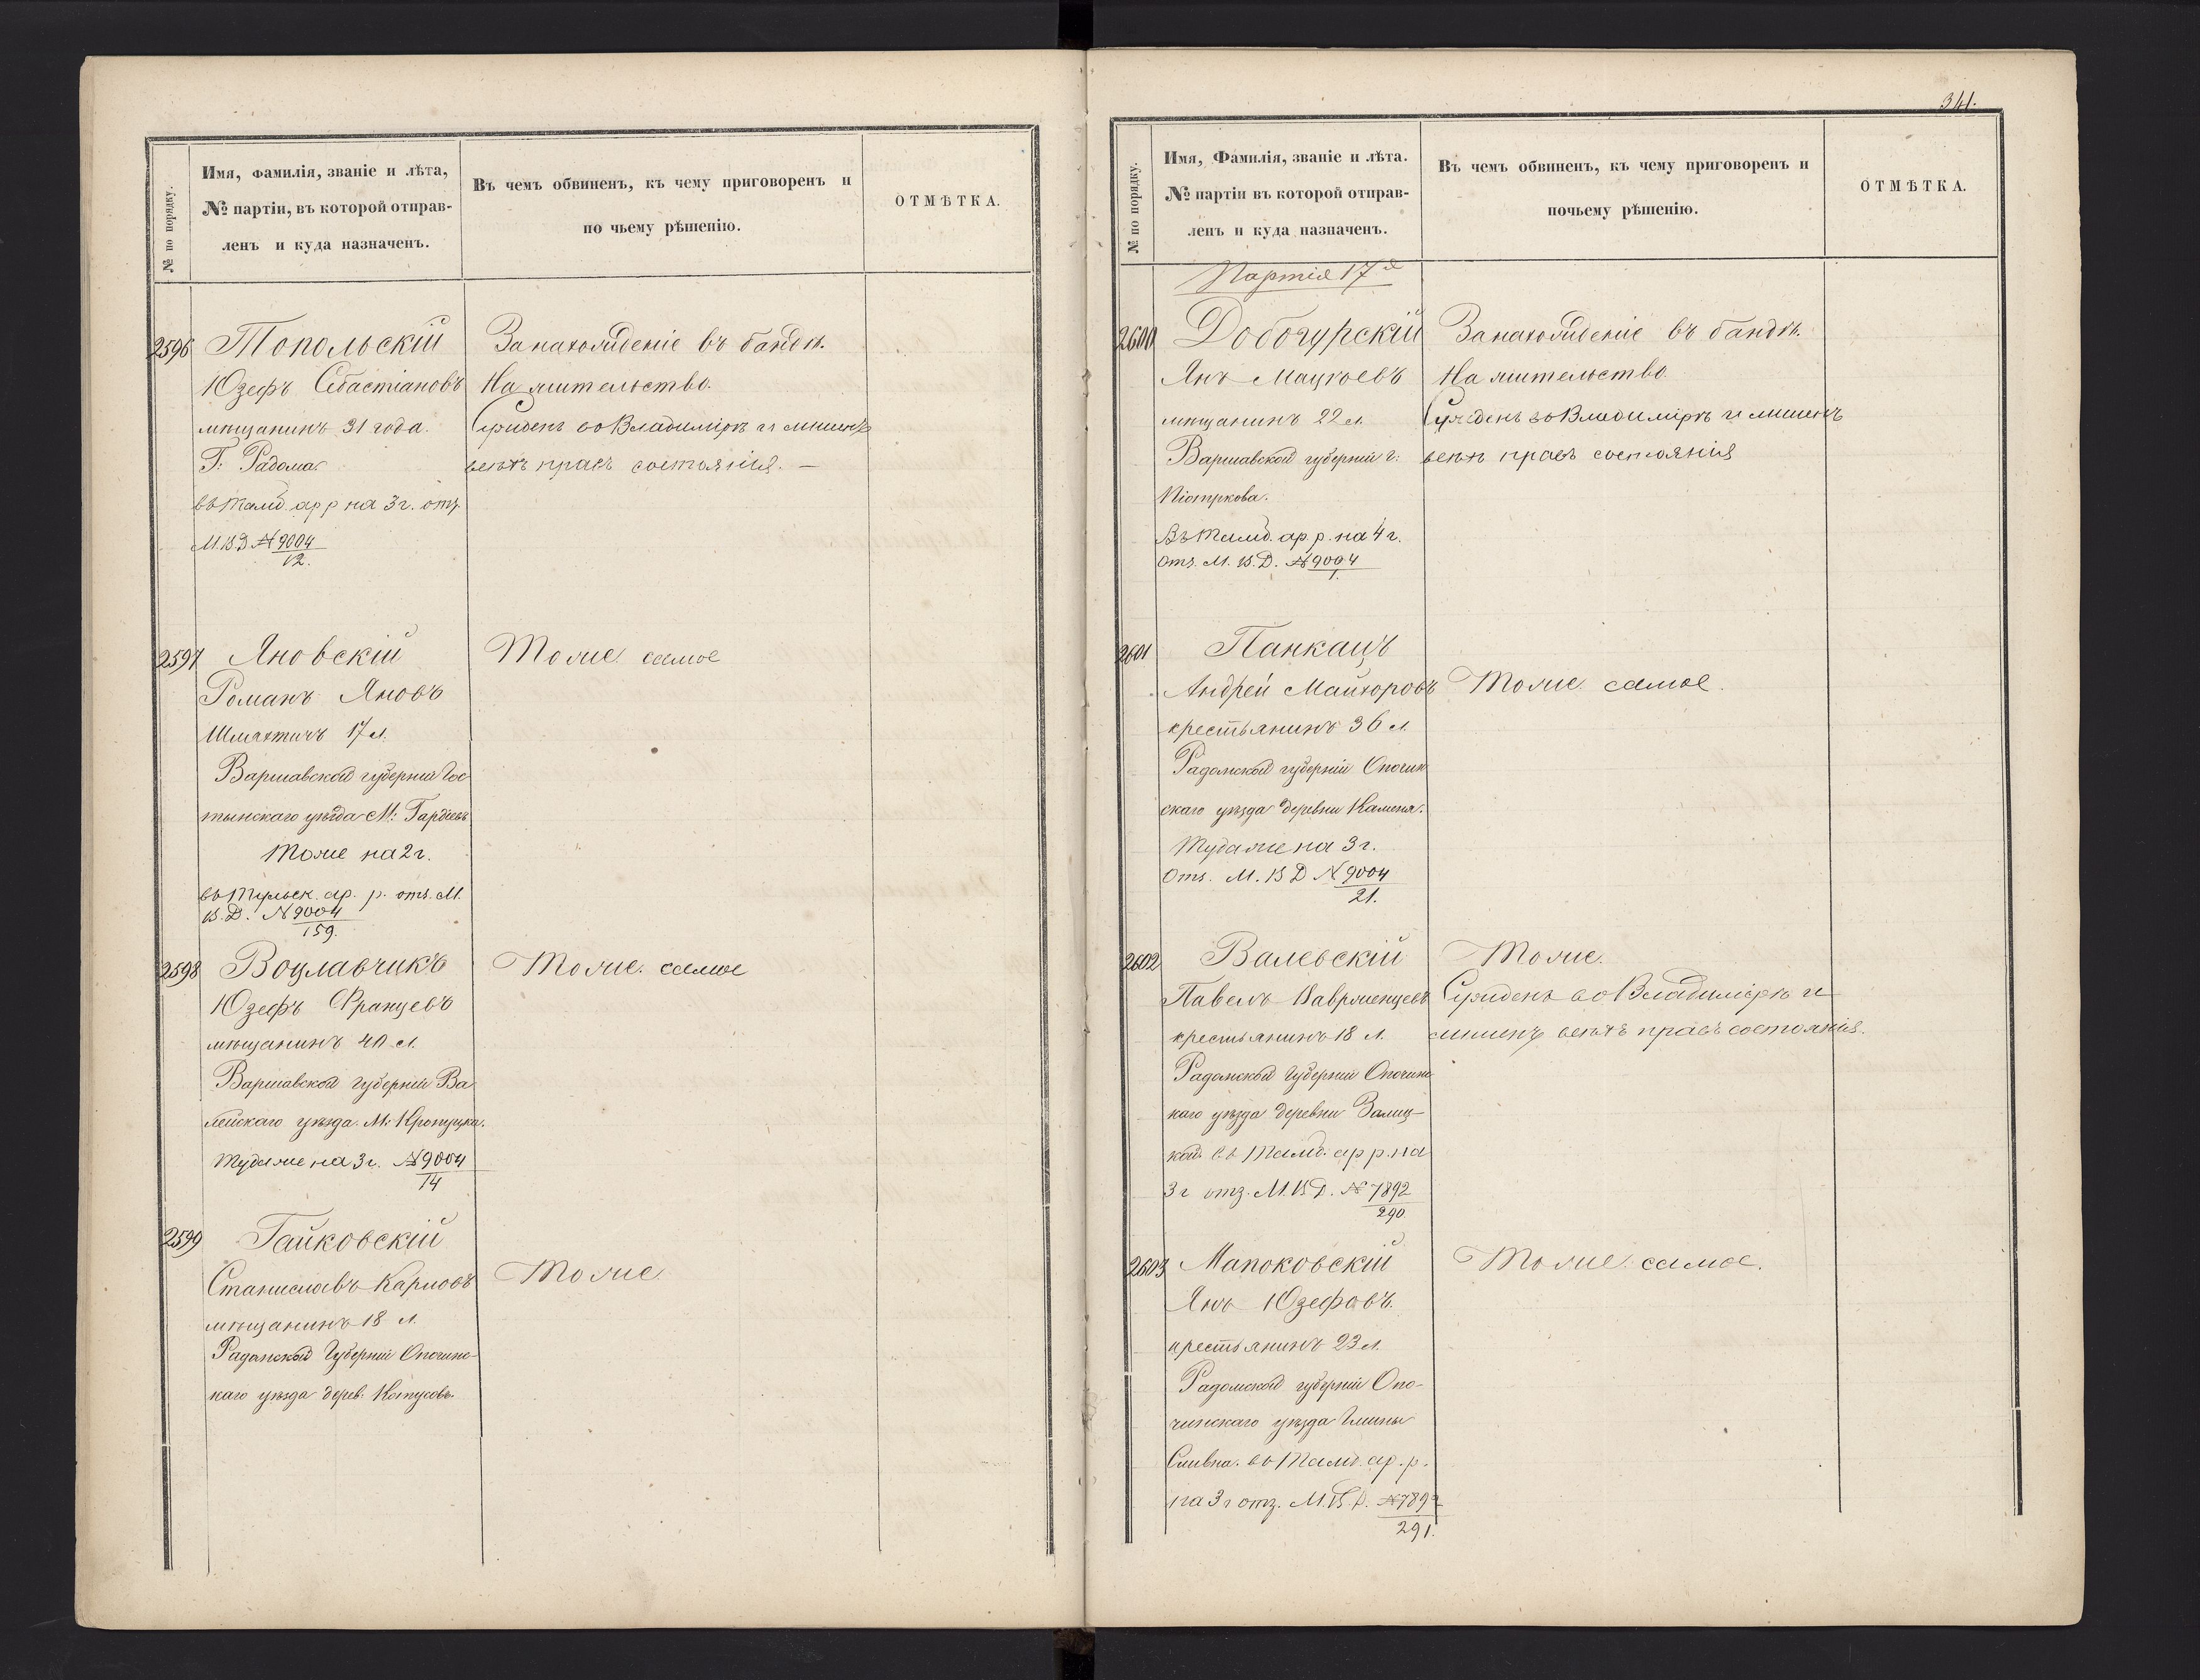 № по порядку.
Имя, фамилія, званіе и лѣта,
№ партіи, въ которой отправ-
ленъ и куда назначенъ.
Въ чемъ обвиненъ, къ чему приговоренъ и
по чьему рѣшенію.
ОТМѢТКА.
2596
Топольскій
Юзефъ Себастіановъ
мѣщанинъ 31 года.
Г. Радома
въ Тамб. ар р на 3 г. отз.
М.В.Д № 9004
12.
За нахожденіе въ бандѣ.
На жительство.
Сужденъ во Владимірѣ и лишенъ
всѣхъ правъ состоянія. —
2597
Яновскій
Романъ Яновъ
Шляхтичъ 17 л.
Варшавской губерніи Гос
тынскаго уѣзда М:
Тоже на 2 г.
въ Тульск. ар. р. отз. М.
В.Д. № 9004
159.
Тоже самое
2598
Воцлавчикъ
Юзефъ Францевъ
мѣщанинъ 40 л.
Варшавской губерніи
уѣзда. М:
Туда же на 3 г. № 9004
14
Тоже самое
2599
Гайковскій
Станиславъ Карловъ
мѣщанинъ 18 л.
Радомской Губерніи Опочинс-
каго уѣзда дерев.
Тоже
341.
№ по порядку.
Имя, Фамилія, званіе и лѣта.
№ партіи въ которой отправ-
ленъ и куда назначенъ.
Въ чемъ обвиненъ, къ чему приговоренъ и
почьему рѣшенію.
ОТМѢТКА.
Партія 17я
2600
Добогурскій
Янъ Мацѣевъ
мѣщанинъ 22 л.
Варшавской губерніи г.
Піотркова.
Въ Тамб. ар. р. на 4 г.
отз. М. В. Д. № 9004
1.
За нахожденіе въ бандѣ.
На жительство.
Сужденъ во Владимірѣ и лишенъ
всѣхъ правъ состоянія
2601
Панкацъ
Андрей Майхоровъ
крестьянинъ 36 л.
Радомской губерніи Опочин
скаго уѣзда деревни Каменя.
Туда же на 3 г.
Отз. М. В Д № 9004
21.
Тоже самое.
2602
Валевскій
Павелъ Ваврженцевъ
крестьянинъ 18 л.
Радомской Губерніи Опочинс
каго уѣзда деревни Залиц-
кой. въ Тамб. ар р. на
3 г отз. М.В Д. № 7892
290
Тоже.
Сужденъ во Владимірѣ и
лишенъ всѣхъ правъ состоянія.
2603
Мапоковскій
Янъ Юзефовъ.
крестьянинъ 23 л.
Радомской губерніи Опо-
чинскаго уѣзда Гмины
въ Тамб. ар. р.
на 3 г отз. М.В.Д. № 7892
291.
Тоже самое.